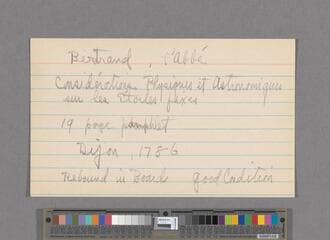 Bertrand, l'Abbé
Considérations Physiques et Astronomiques
sur les Etoiles fixes
19 page pamphlet
Dijon, 1786
rebound in Board good Condition